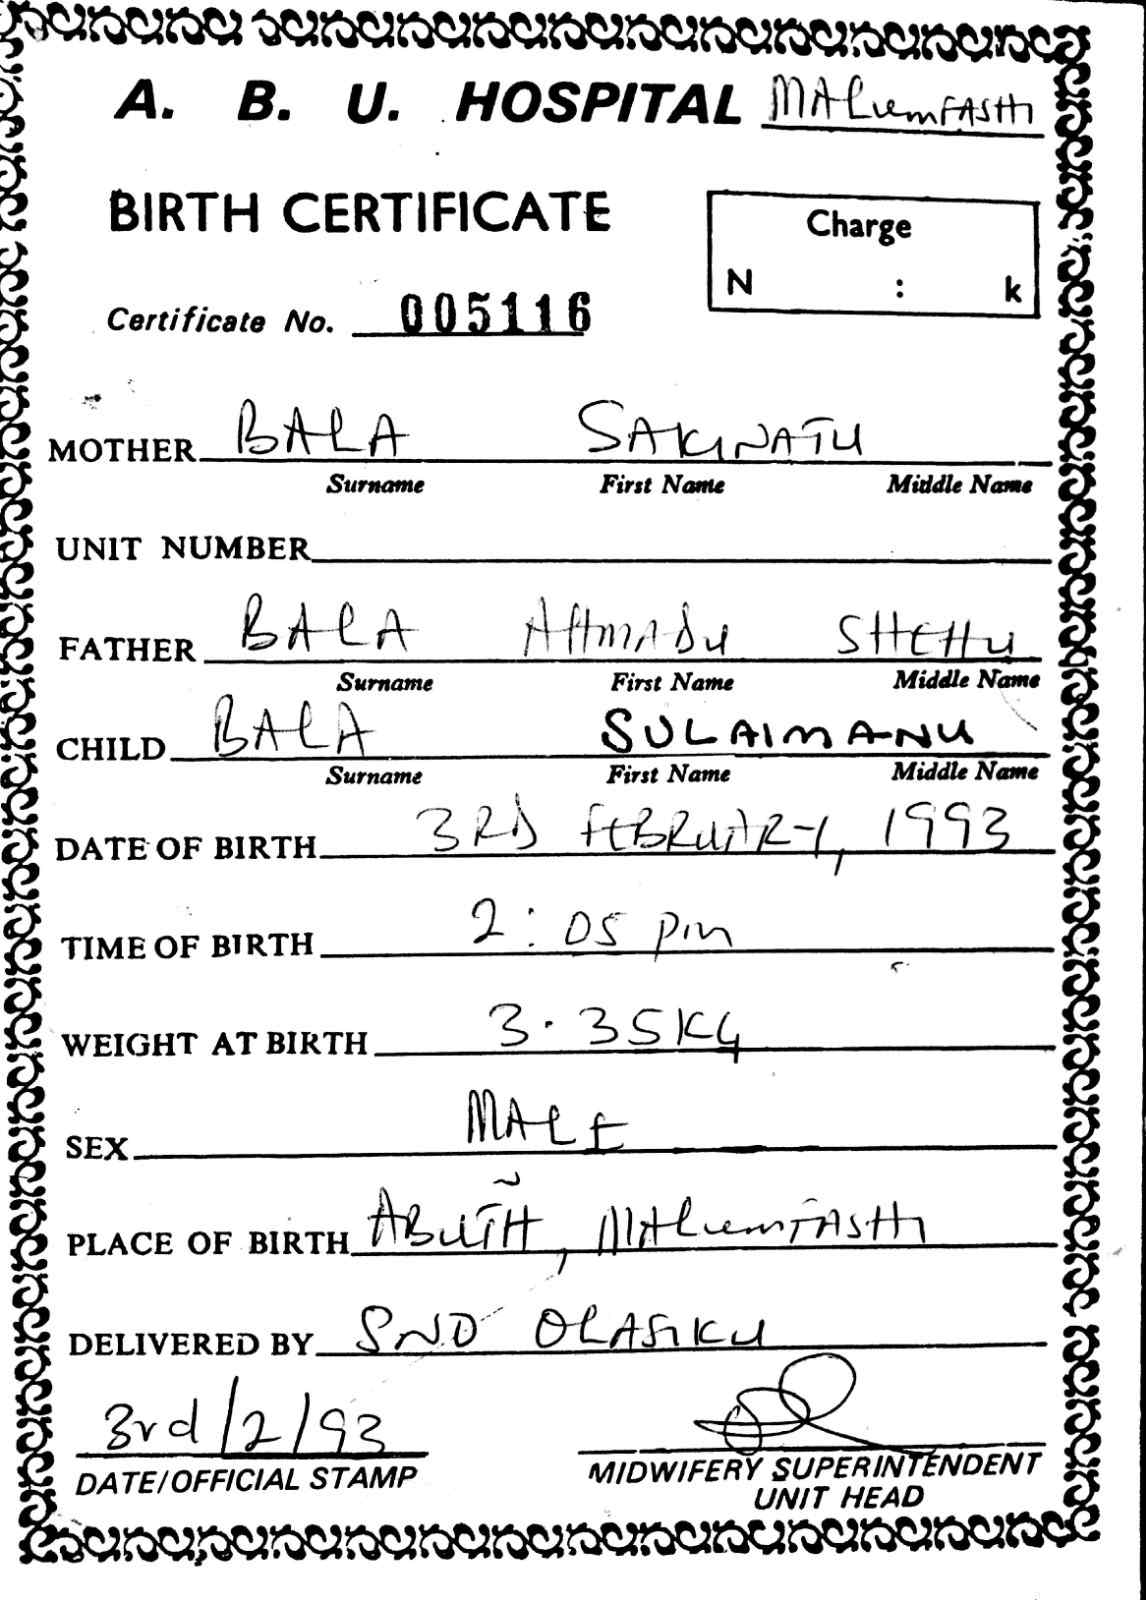 A. B. U. HOSPITAL MALUMFASHI
BIRTH CERTIFICATE
Charge
N : k
Certificate No. 005116
MOTHER BALA SAKINATU
Surname First Name Middle Name
UNIT NUMBER
FATHER BALA AHMADU SHEHU
Surname First Name Middle Name
CHILD BALA SULAIMANU
Surname First Name Middle Name
DATE OF BIRTH 3RD FEBRUARY, 1993
TIME OF BIRTH 2:05 pm
WEIGHT AT BIRTH 3.35KG
SEX MALE
PLACE OF BIRTH ABUTH, MALUMFASHI
DELIVERED BY
3rd/2/93
DATE/OFFICIAL STAMP
MIDWIFERY SUPERINTENDENT
UNIT HEAD